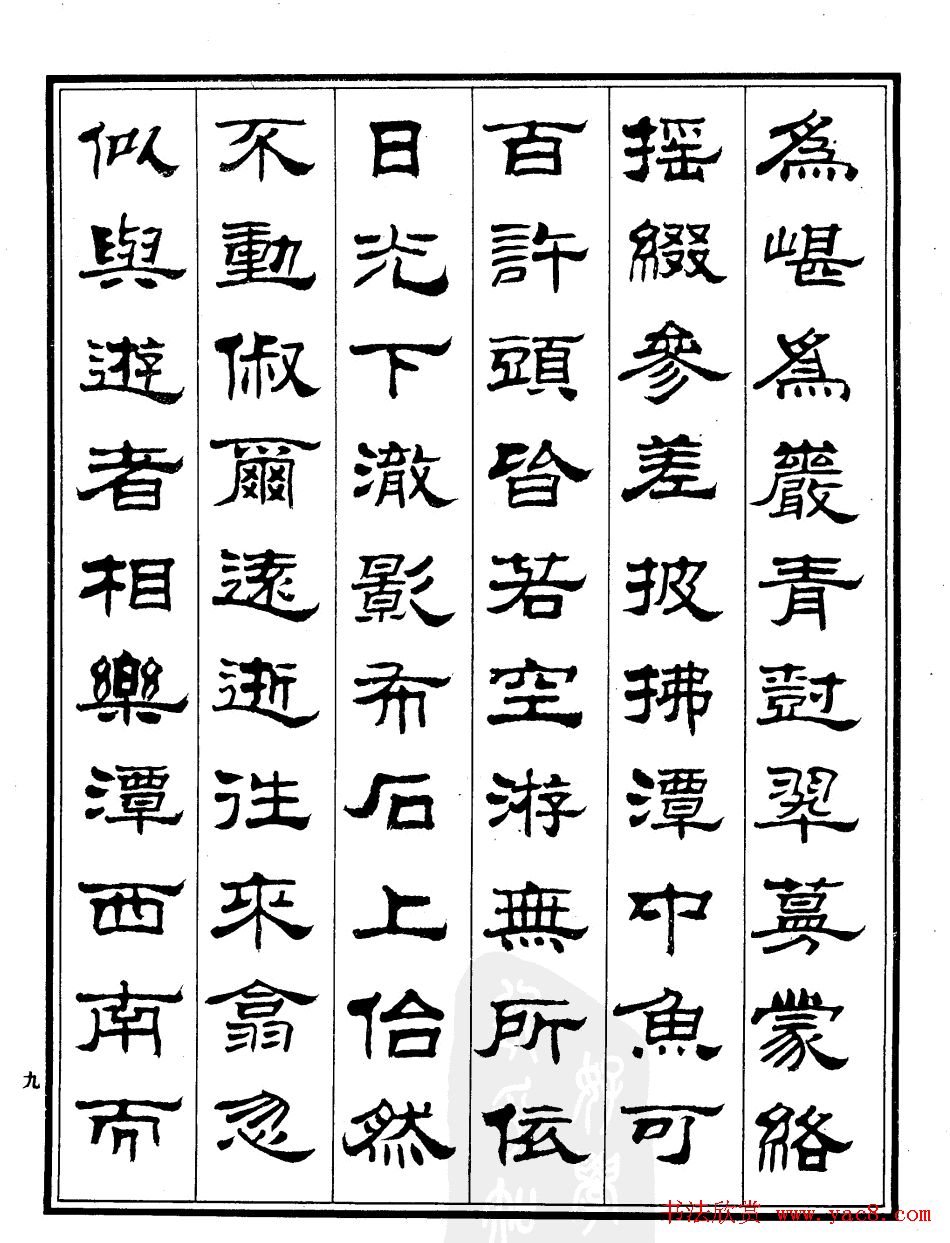 為嵁為嚴青尌翠蔓蒙絡
搖綴參差披拂潭中魚可
百許頭皆若空游無所依
日光下澈影布石上佁然
不動俶爾遠逝往來翕忽
似與遊者相樂潭西南而
九
书法欣赏 www.yac8.com